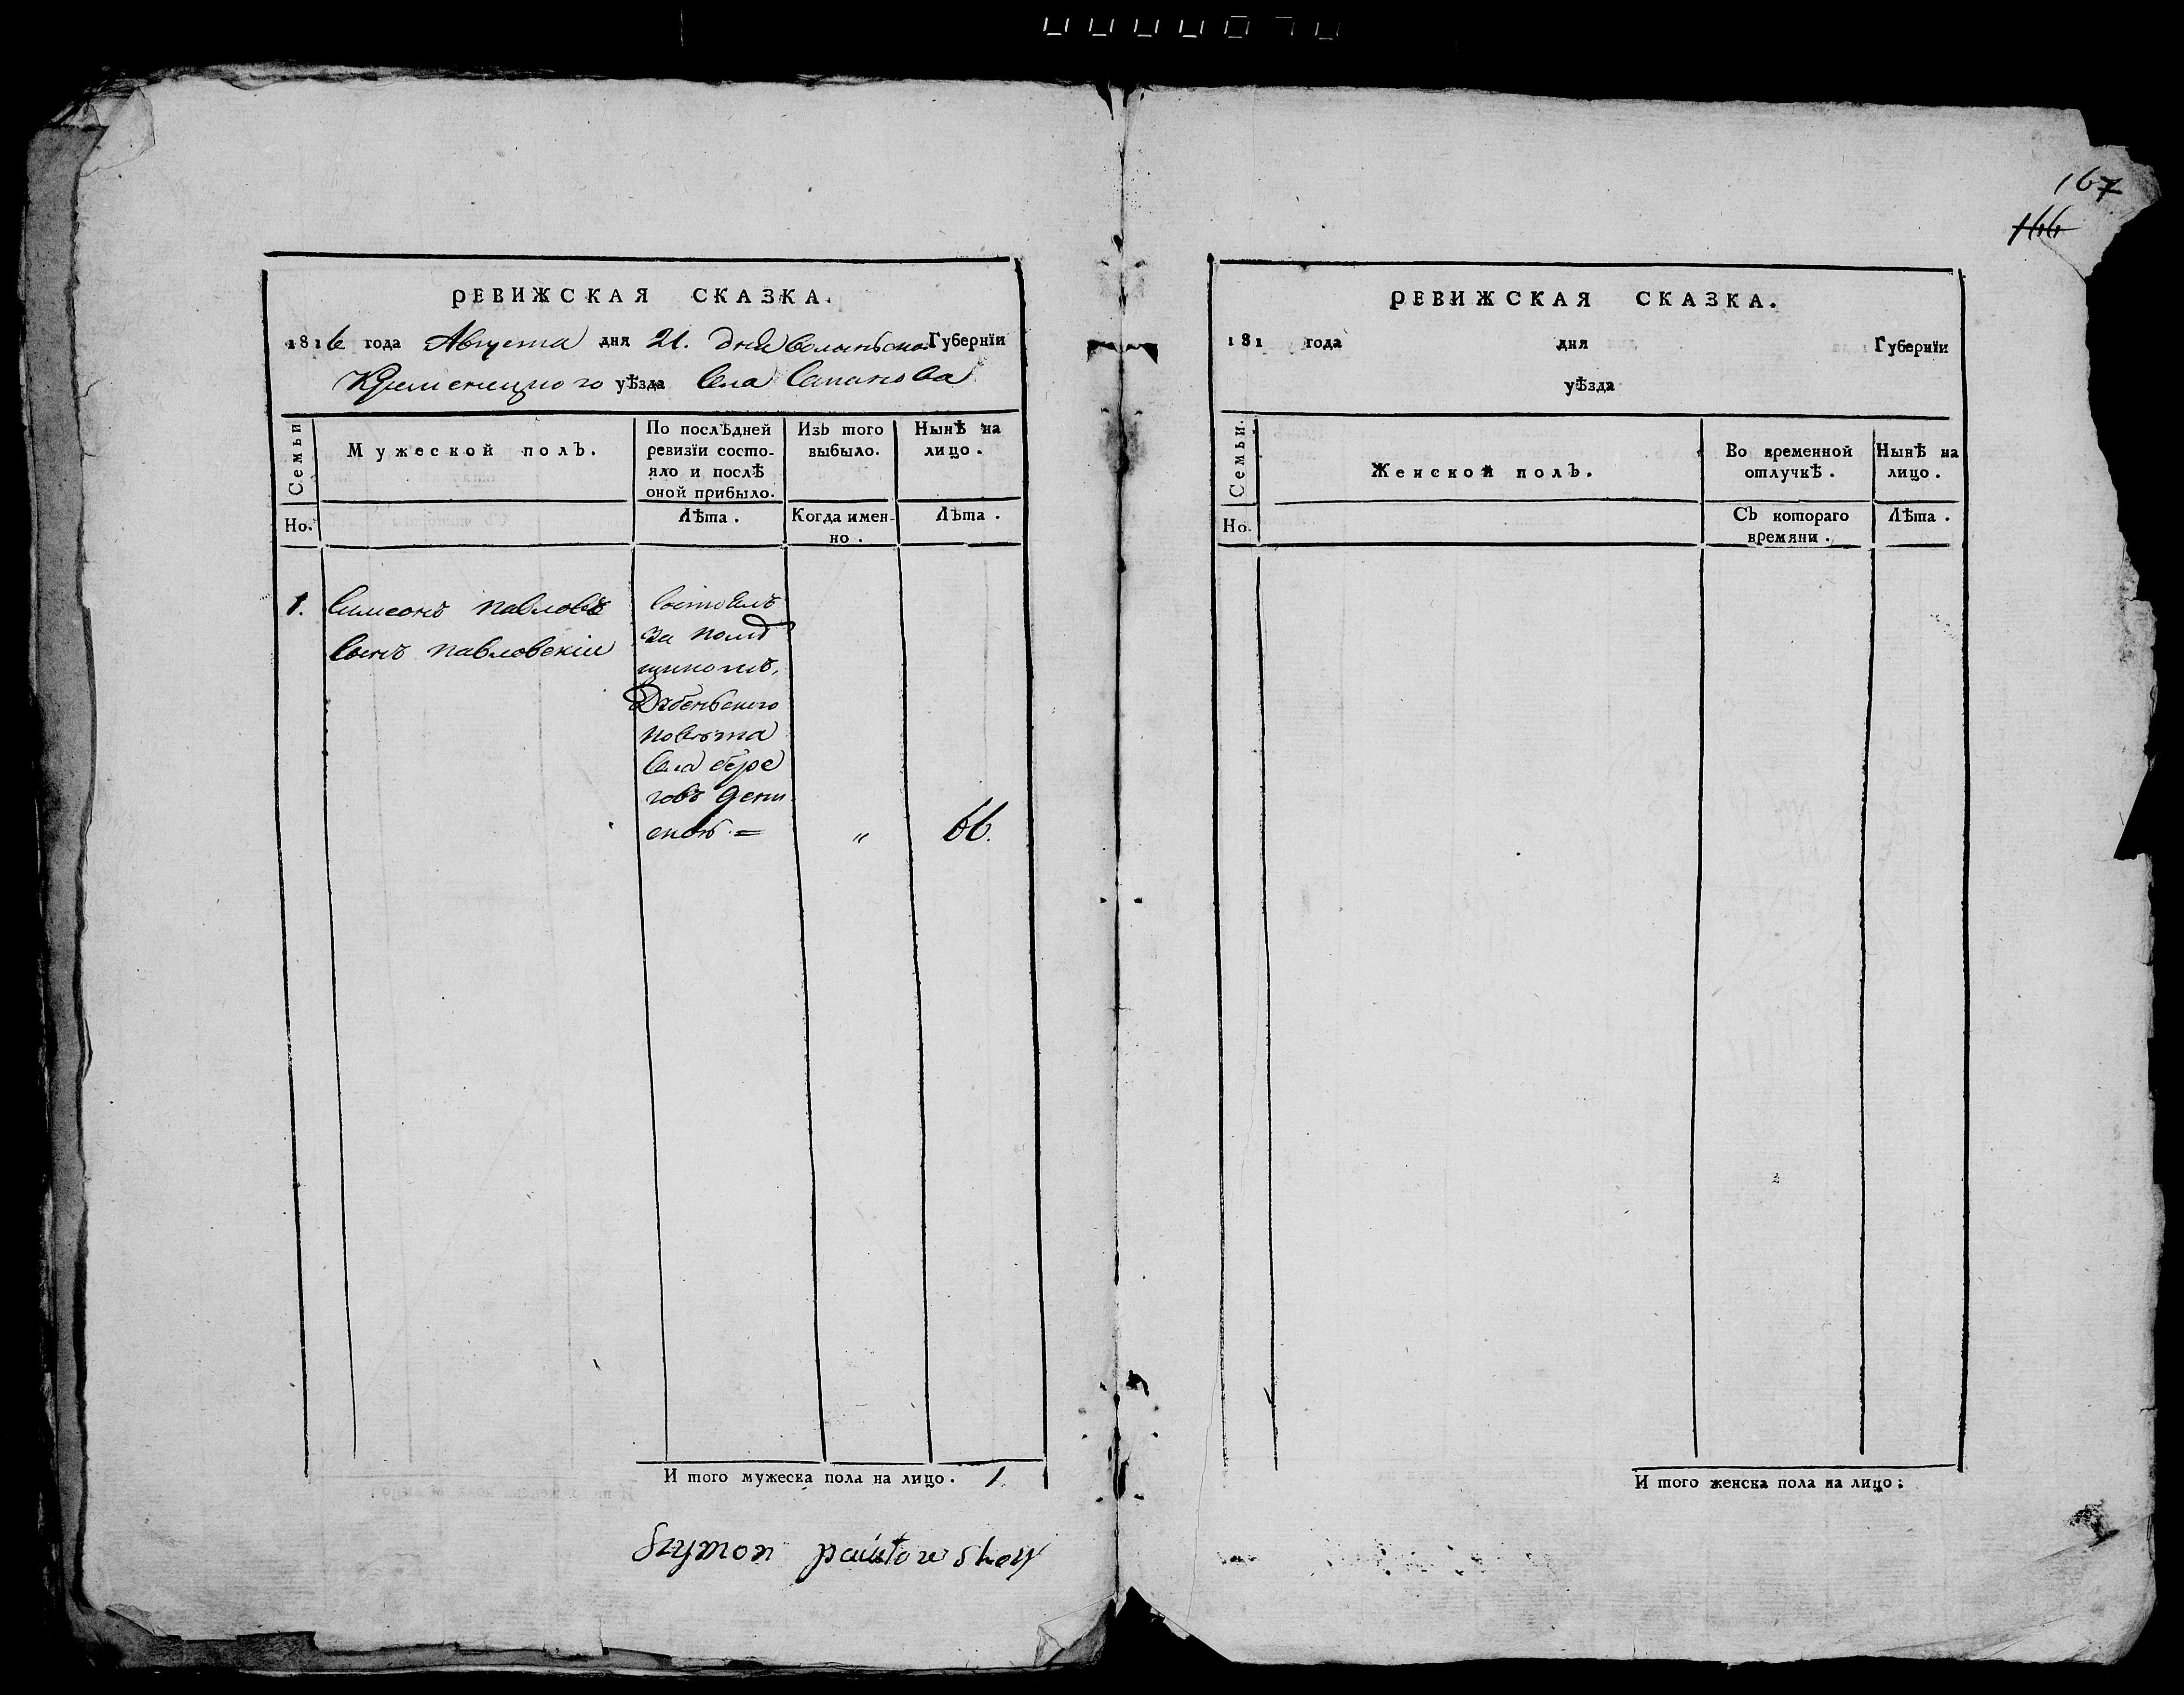 167
166
РЕВИЖСКАЯ СКАЗКА.
1816 года Августа дня 21. дня Волыньской Губернїи
Кременецкого уѣзда Села Сапанова
Семьи
Мужеской полъ.
По послѣдней ревизїи состояло и послѣ оной прибыло.
Изъ того выбыло.
Нынѣ на лицо.
Но.
Лѣта.
Когда именно.
Лѣта.
1. Симеонъ павловъ
Сынъ павловскiи
Состоялъ
за помѣ
щикомъ,
Дубенского
повѣта
Села бере
говъ
„
66.
И того мужеска пола на лицо. 1
Szymon pawłowskey
РЕВИЖСКАЯ СКАЗКА.
181 года дня Губернїи
уѣзда
Семьи.
Женской полъ.
Во временной отлучкѣ.
Нынѣ на лицо.
Но.
Съ котораго времяни.
Лѣта.
И того женска пола на лицо: